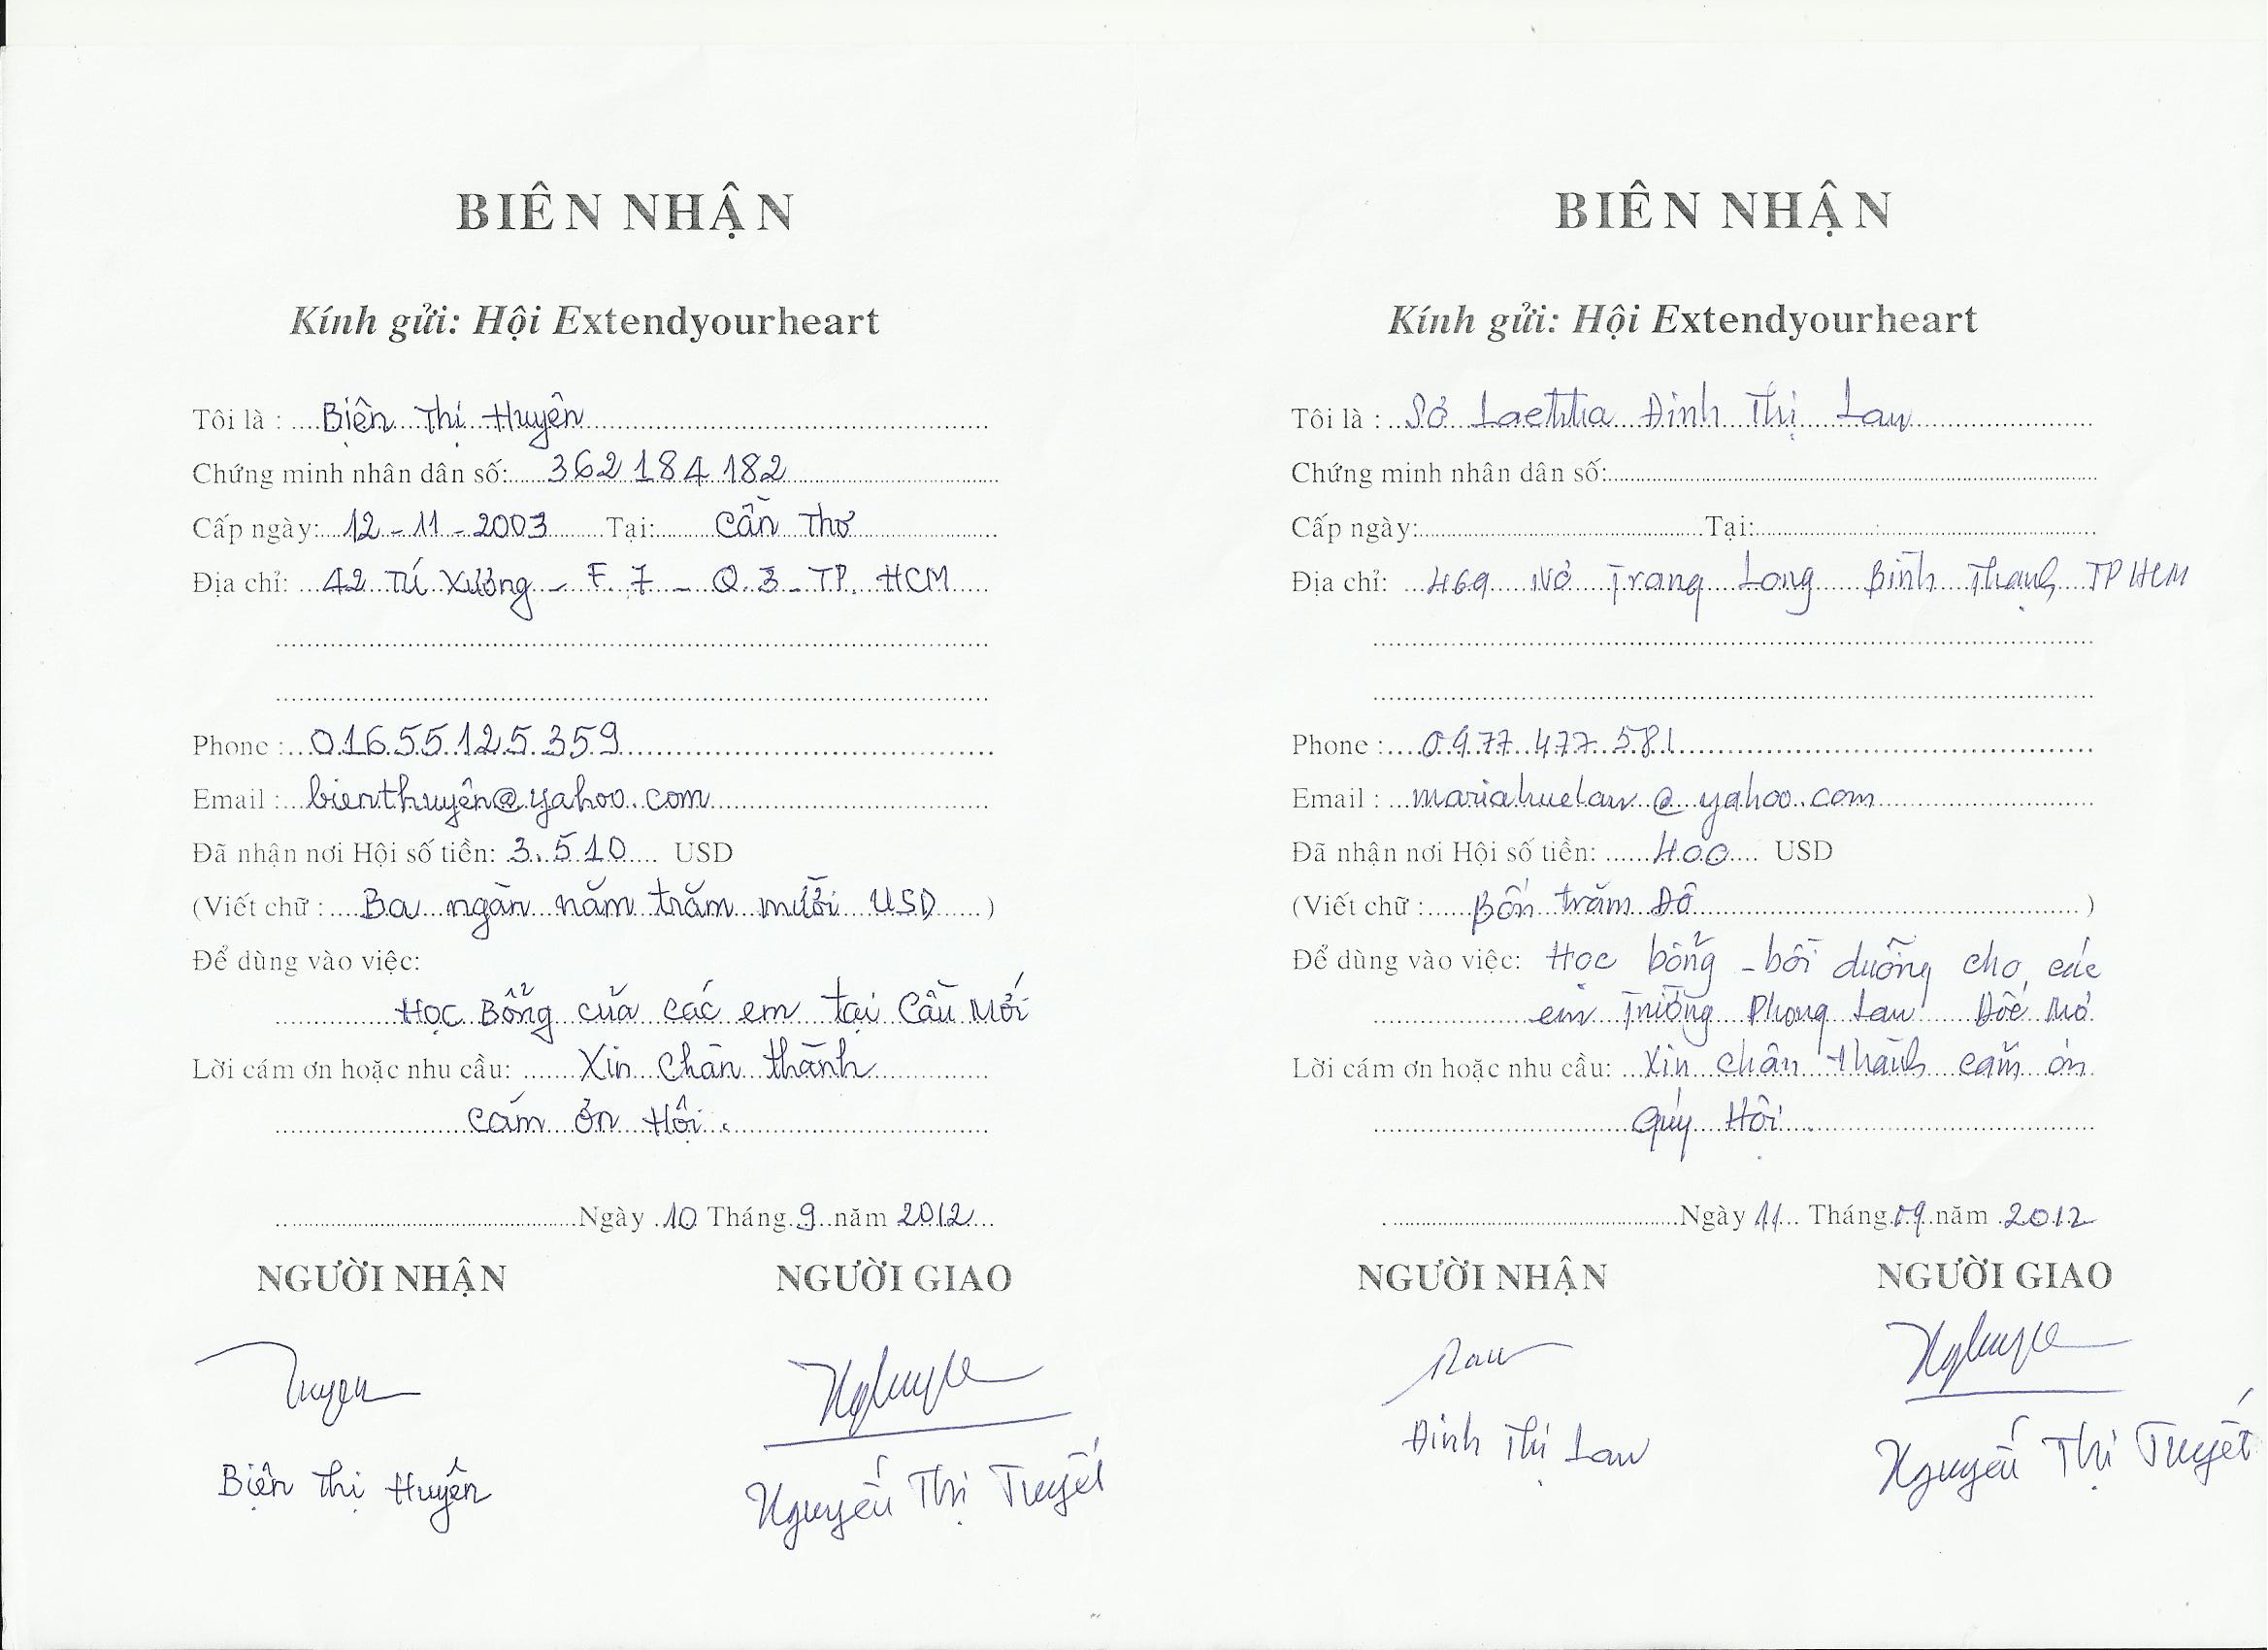 BIÊN NHẬN
Kính gửi: Hội Extendyourheart
Tôi là : Biện Thị Huyên
Chứng minh nhân dân số: 362184182
Cấp ngày: 12 - 11 - 2003 Tại: Cần Thơ
Địa chỉ: 42 Tú Xương - F. 7 - Q. 3 - TP. HCM
Phone : 01655125359
Email : bienthuyên@yahoo.com
Đã nhận nơi Hội số tiền: 3.510 USD
(Viết chữ : Ba ngàn năm trăm mười USD )
Để dùng vào việc:
Học Bổng của các em tại Cầu Mới
Lời cám ơn hoặc nhu cầu: Xin chân thành
cám ơn Hội.
Ngày 10 Tháng 9 năm 2012
NGƯỜI NHẬN NGƯỜI GIAO
Biện Thị Huyên Nguyễn Thị Tuyết
BIÊN NHẬN
Kính gửi: Hội Extendyourheart
Tôi là : Sơ Laetitia Đinh Thị Lan
Chứng minh nhân dân số:
Cấp ngày: Tại:
Địa chỉ: 469 Nơ Trang Long Bình Thạnh TP HCM
Phone : 0977 477 581
Email : mariahuelan@yahoo.com
Đã nhận nơi Hội số tiền: 400 USD
(Viết chữ : Bốn trăm Đô )
Để dùng vào việc: Học bổng - bồi dưỡng cho các
em Trường Phong Lan
Lời cám ơn hoặc nhu cầu: Xin chân thành cảm ơn
Quý Hội.
Ngày 11 Tháng 09 năm 2012
NGƯỜI NHẬN NGƯỜI GIAO
Đinh Thị Lan Nguyễn Thị Tuyết